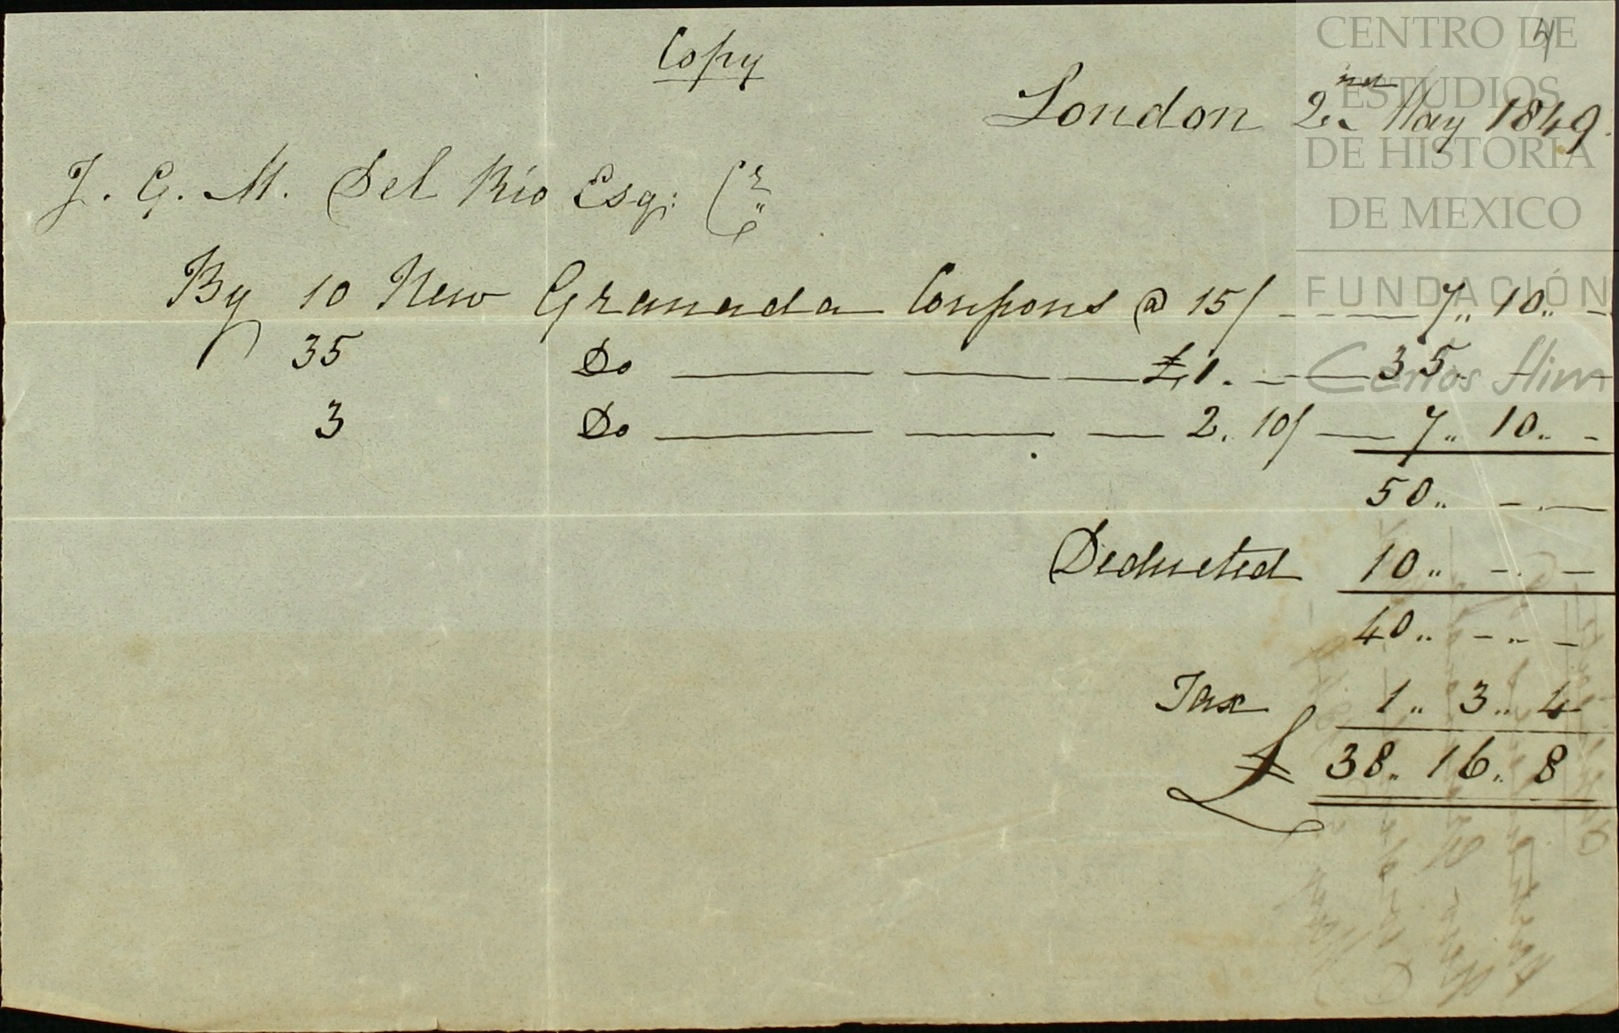 Copy
London 2nd May 1849.
J. G. M. Del Rio Esq: Cr
By 10 New Granada Coupons @ 15/ - - - 7.. 10.. -
35 Do — — — £1. - — 35. - -
3 Do — — — 2. 10/ — 7.. 10.. -
50.. - . —
Deducted 10.. - . -
40.. - .. -
Tax 1.. 3.. 4
£ 38.. 16.. 8
CENTRO DE
ESTUDIOS
DE HISTORIA
DE MEXICO
FUNDACIÓN
Carlos Slim